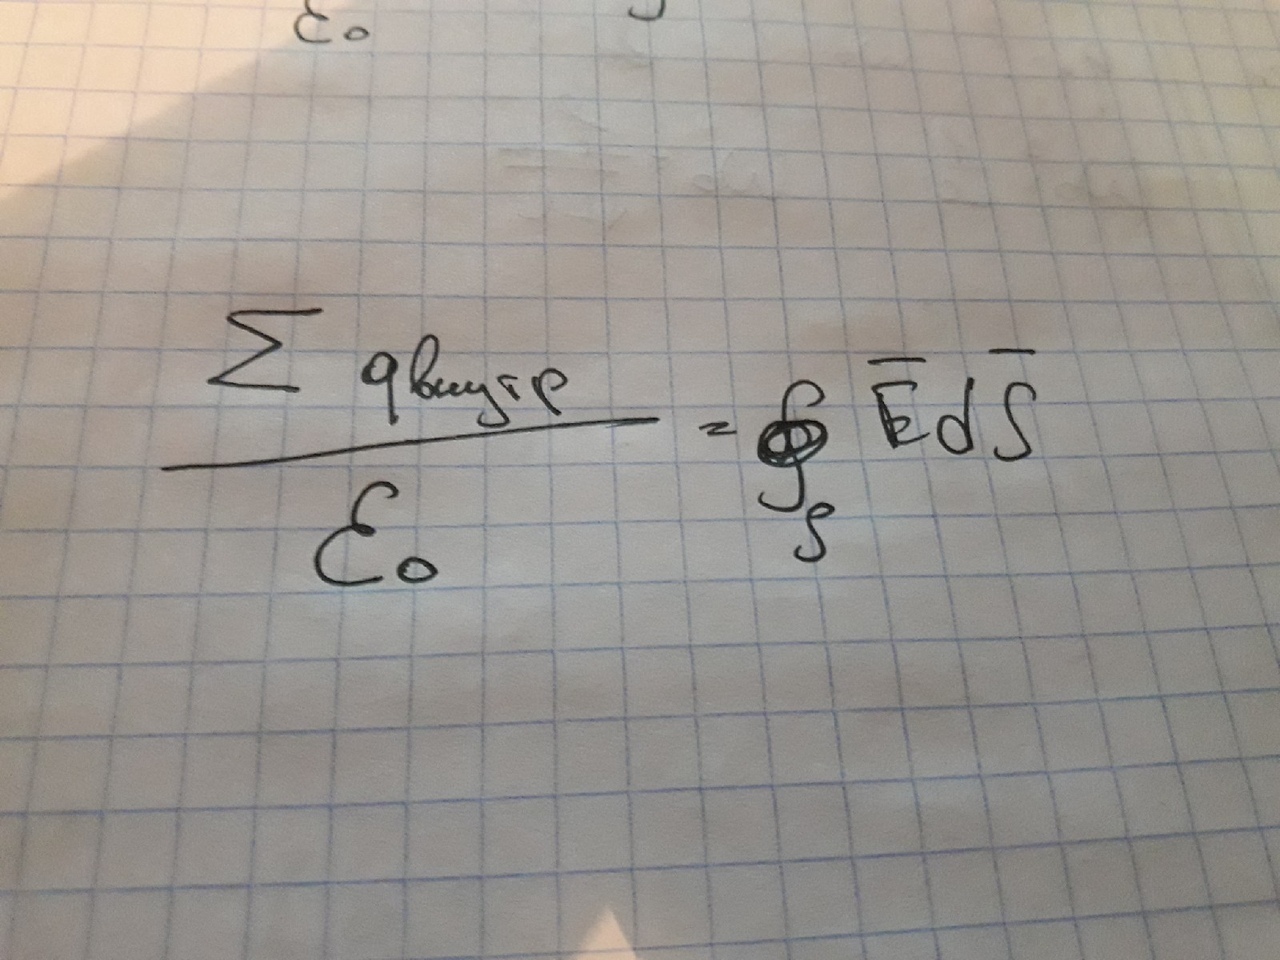 ε₀
Σ qвнутр
ε₀
= ∮ E̅ d S̅
S